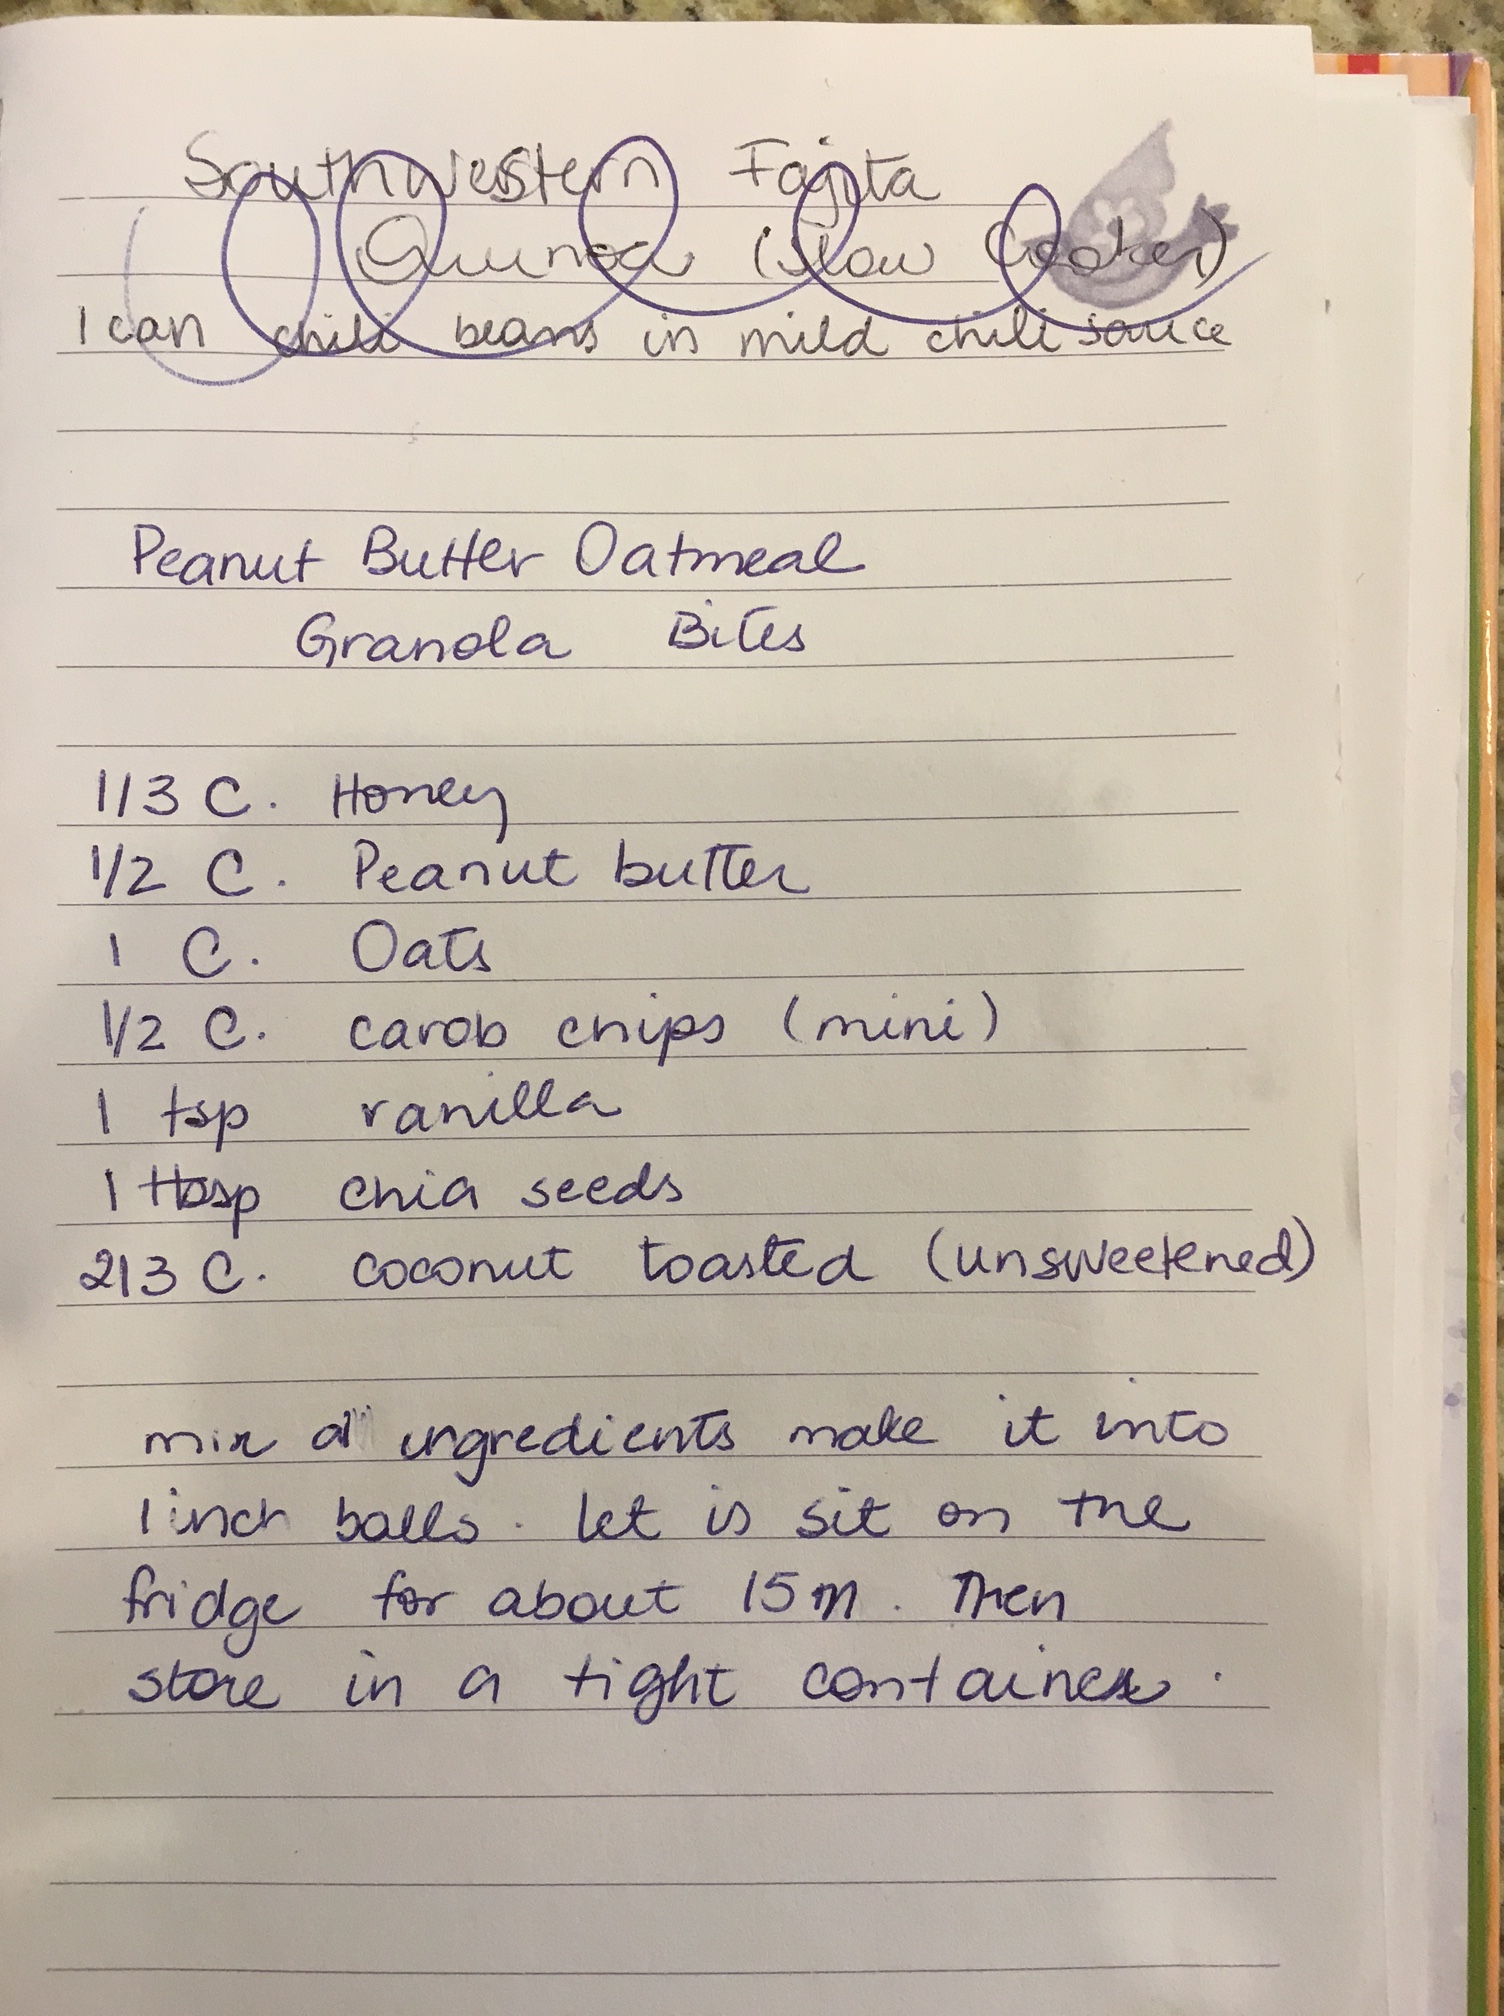 Southwestern Fajita
Quinoa (Slow Cooker)
1 can chili beans in mild chili sauce
Peanut Butter Oatmeal
Granola Bites
1/3 C. Honey
1/2 C. Peanut butter
1 C. Oats
1/2 C. carob chips (mini)
1 tsp vanilla
1 tbsp chia seeds
2/3 C. coconut toasted (unsweetened)
mix all ingredients make it into
1 inch balls. let is sit on the
fridge for about 15m. Then
store in a tight container.